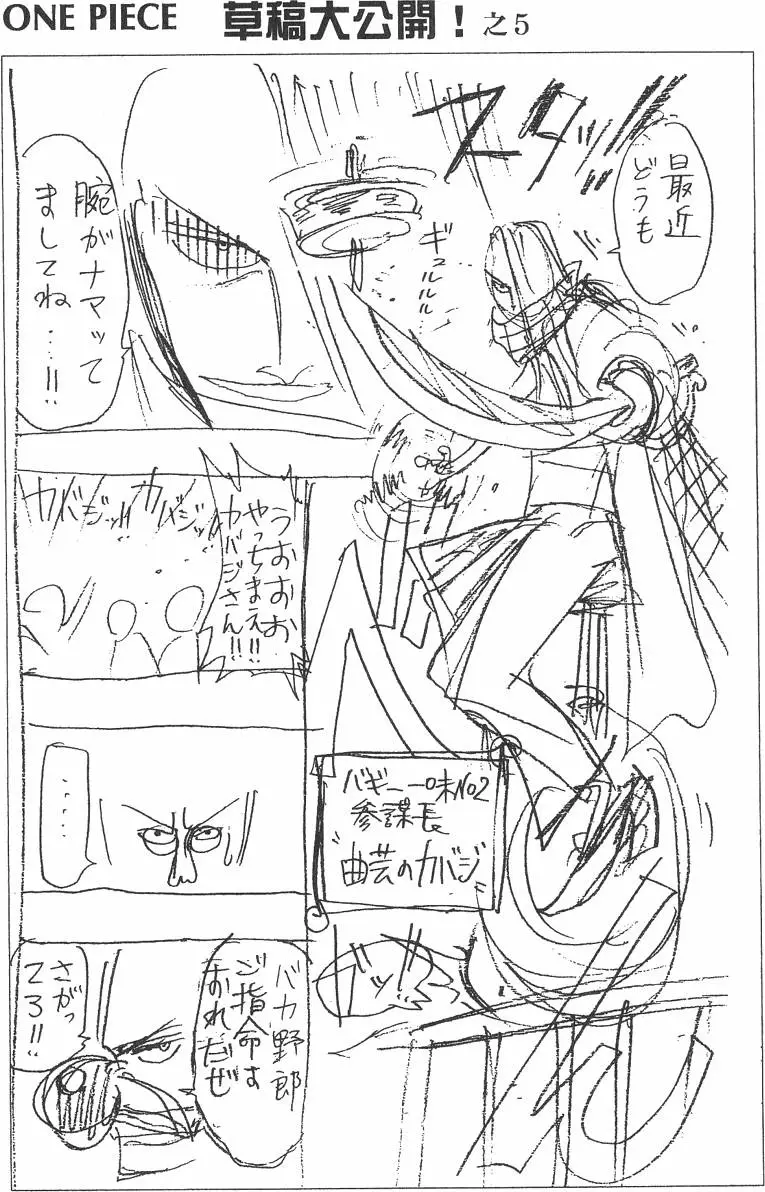 ONE PIECE 草稿大公開！之5
スタッ!!
最近
どうも
ギュルルル
腕がナマッて
ましてね…!!
うおおお
やっちまえ!!
カバジさん!!
カバジッ!!
カバジッ
バギー一味No2
参謀長
"曲芸のカバジ"
‥‥
バカ野郎
ご指命は
おれだぜ
さがっ
てろ!!